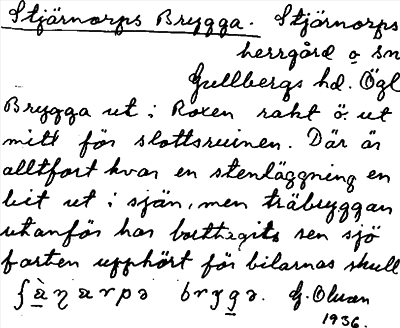 Stjärnorps Brygga. Stjärnorps
herrgård o sn
Gullbergs hd. Ögl
Brygga ut i Roxen rakt ö. ut
mitt för slottsruinen. Där är
alltfort kvar en stenläggning en
bit ut i sjän, men träbryggan
utanför har borttagits sen sjö
farten upphört för bilarnas skull
ʃὰꞃærpə brygə. G. Olson
1936.